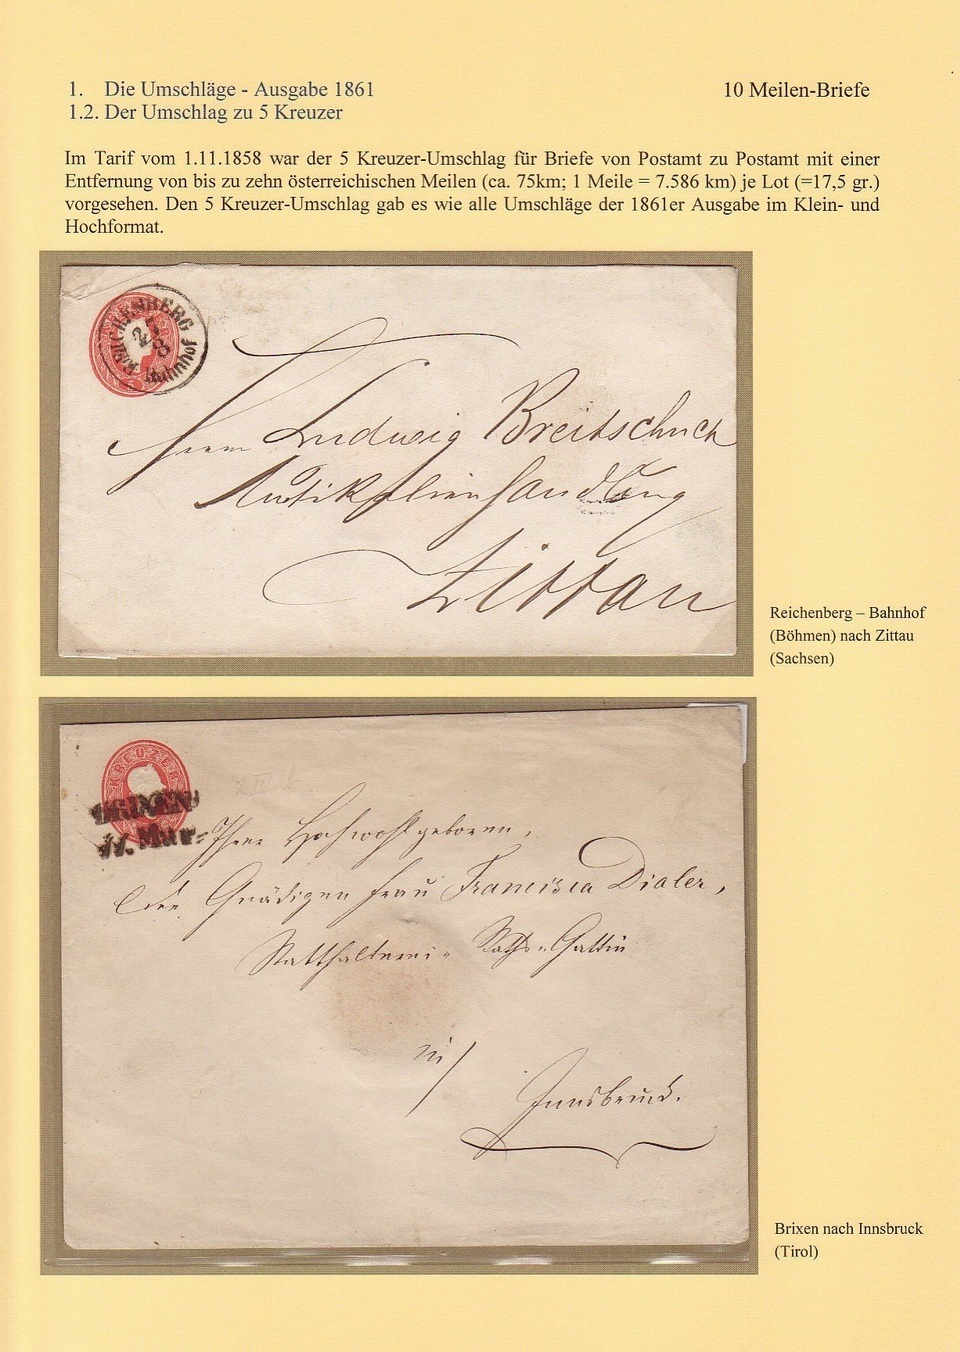 1. Die Umschläge - Ausgabe 1861
10 Meilen-Briefe
1.2. Der Umschlag zu 5 Kreuzer
Im Tarif vom 1.11.1858 war der 5 Kreuzer-Umschlag für Briefe von Postamt zu Postamt mit einer
Entfernung von bis zu zehn österreichischen Meilen (ca. 75km; 1 Meile = 7.586 km) je Lot (=17,5 gr.)
vorgesehen. Den 5 Kreuzer-Umschlag gab es wie alle Umschläge der 1861er Ausgabe im Klein- und
Hochformat.
REICHENBERG
Bahnhof
Herrn Ludwig Breitschuck
Zittau
Reichenberg – Bahnhof
(Böhmen) nach Zittau
(Sachsen)
KREUZER
BRIXEN
Ihrer Hochwohlgeboren,
Der Gnädigen Frau Francisca Dialer,
Statthalterei- Raths-Gattin
in
Innsbruck.
Brixen nach Innsbruck
(Tirol)